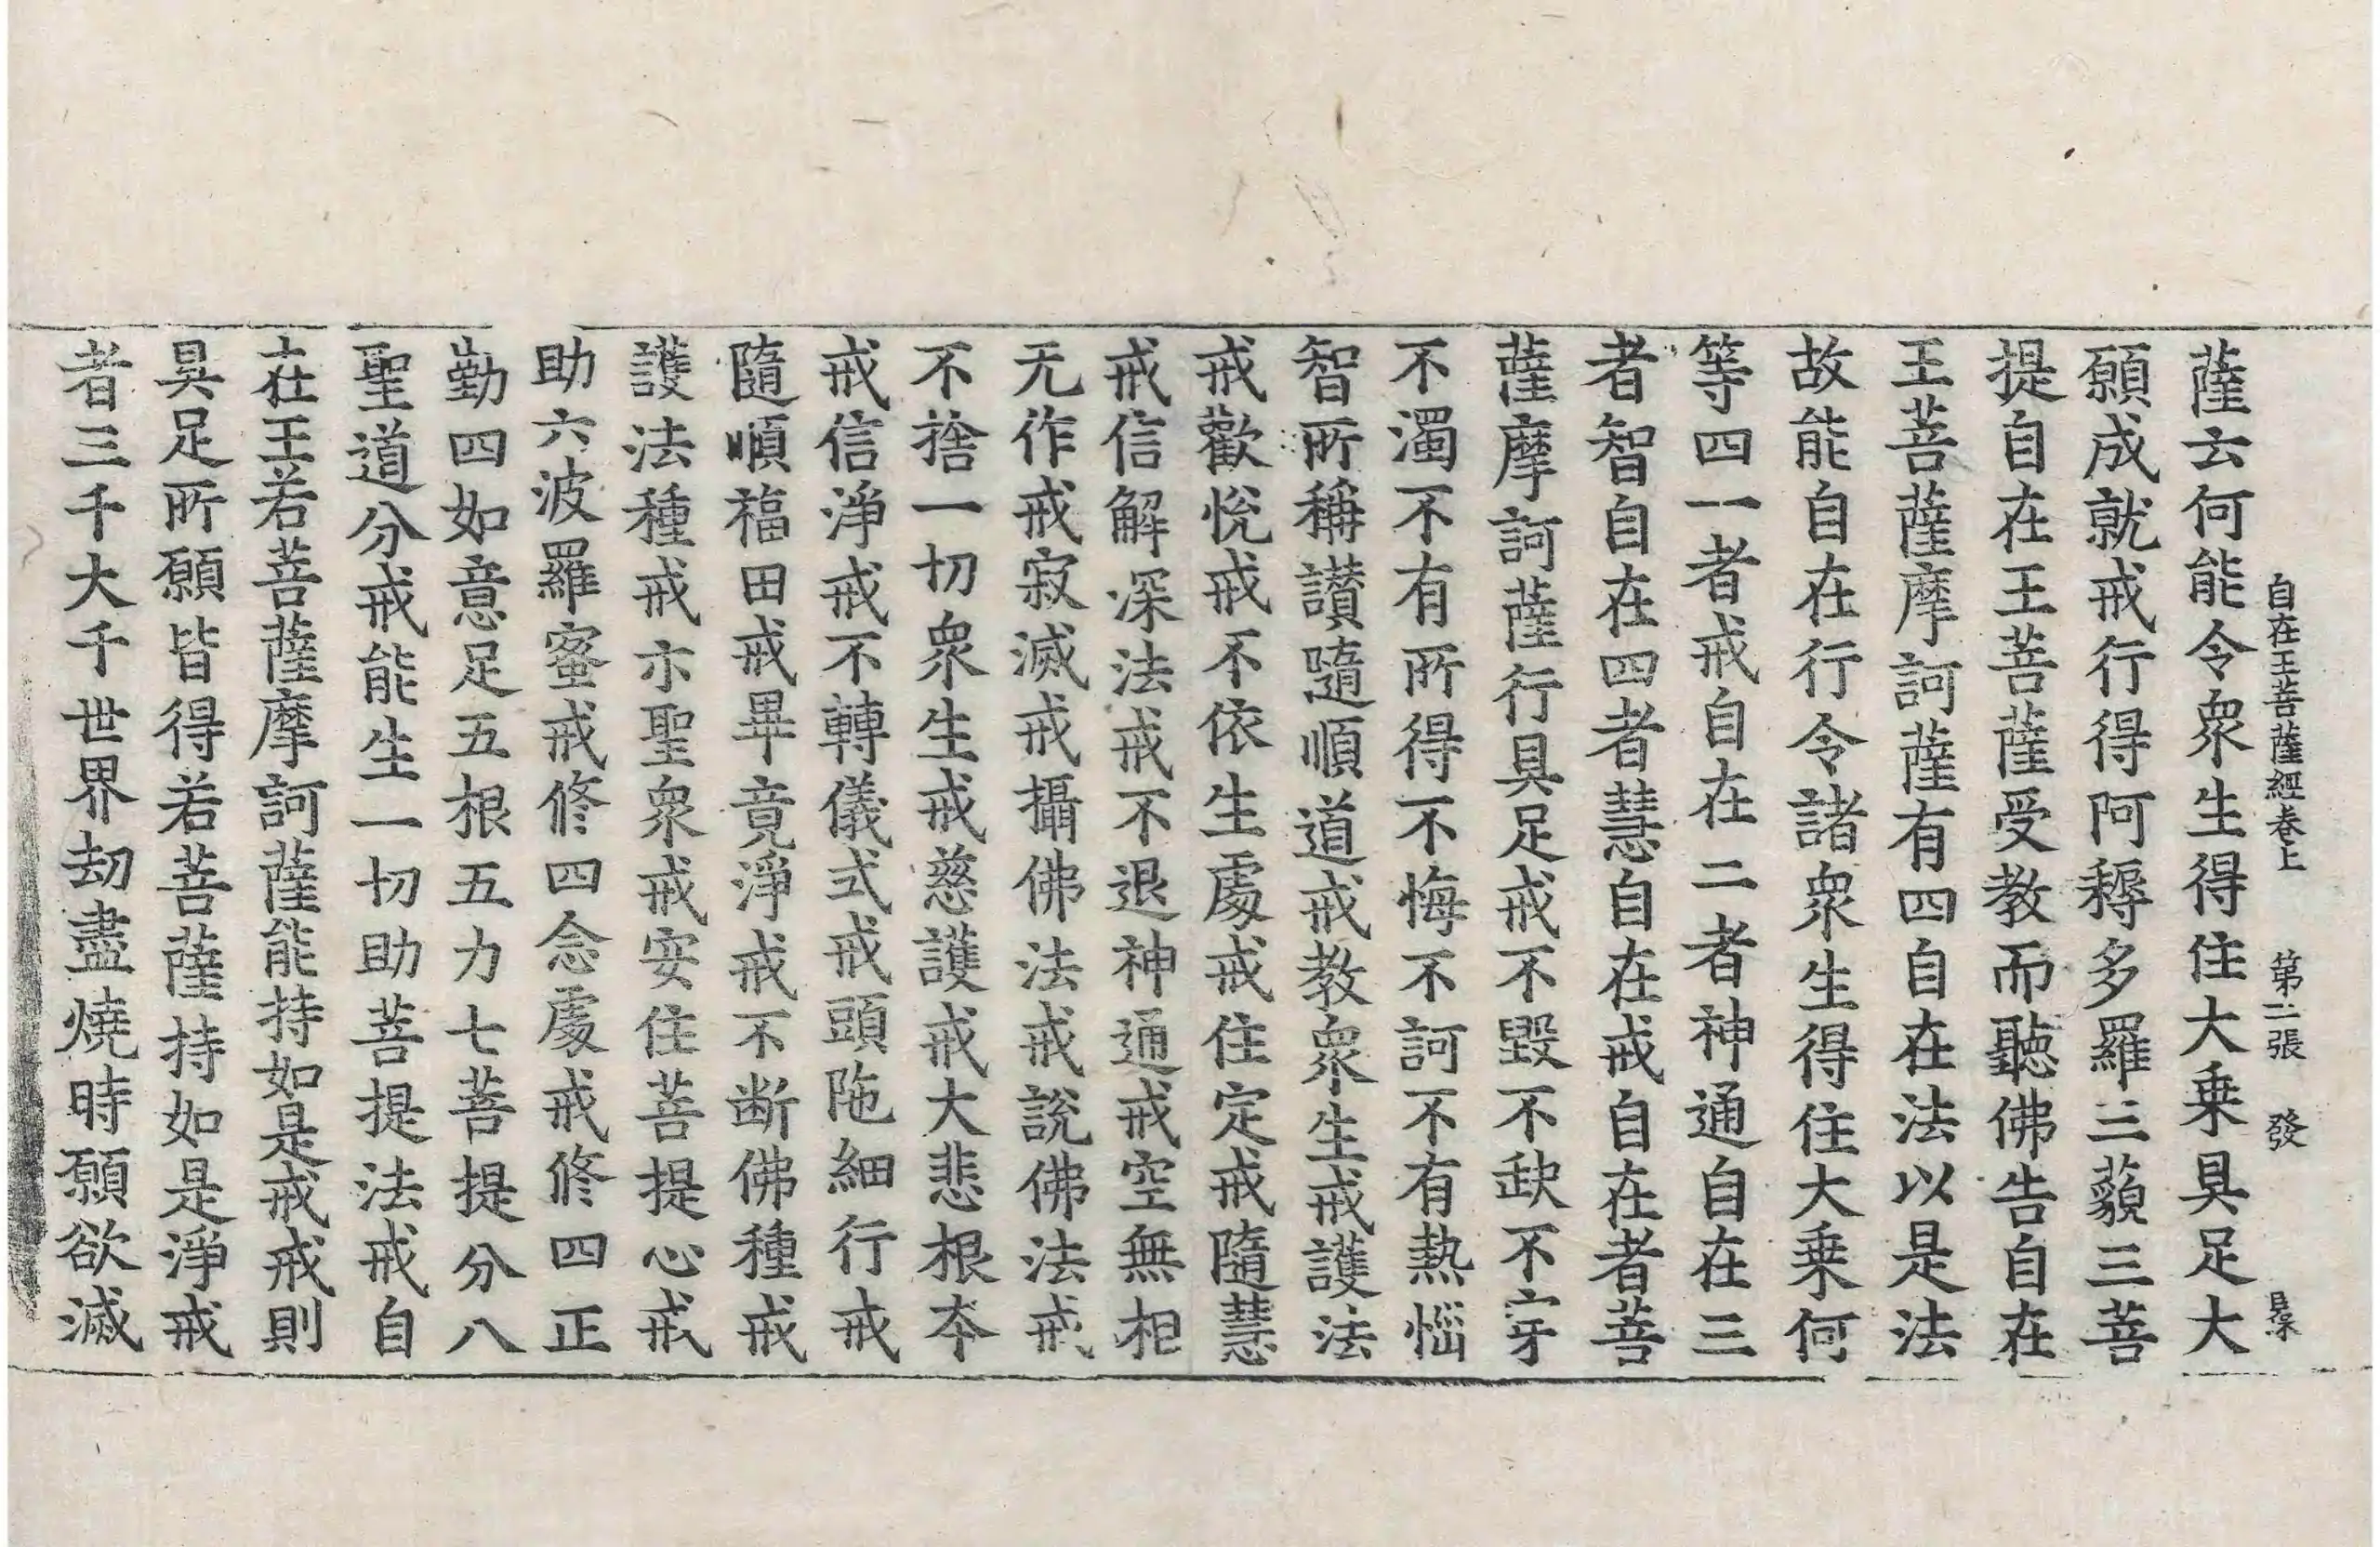 自在王菩薩經卷上 第二張 發
薩云何能令衆生得住大乗具足大
願成就戒行得阿耨多羅三藐三菩
提自在王菩薩受教而聽佛告自在
王菩薩摩訶薩有四自在法以是法
故能自在行令諸衆生得住大乗何
等四一者戒自在二者神通自在三
者智自在四者慧自在戒自在者菩
薩摩訶薩行具足戒不毀不缺不穿
不濁不有所得不悔不訶不有熱惱
智所稱讃隨順道戒教衆生戒護法
戒歡悅戒不依生處戒住定戒隨慧
戒信解深法戒不退神通戒空無相
无作戒寂滅戒攝佛法戒說佛法戒
不捨一切衆生戒慈護戒大悲根本
戒信淨戒不轉儀式戒頭陁細行戒
隨順福田戒畢竟淨戒不断佛種戒
護法種戒示聖衆戒安住菩提心戒
助六波羅蜜戒修四念處戒修四正
勤四如意足五根五力七菩提分八
聖道分戒能生一切助菩提法戒自
在王若菩薩摩訶薩能持如是戒戒則
具足所願皆得若菩薩持如是淨戒
者三千大千世界劫盡燒時願欲滅